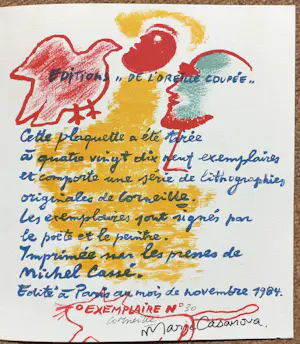 EDITIONS „ DE L'OREILLE COUPÉE „
Cette plaquette a été tirée
à quatre vingt dix neuf exemplaires
et comporte une série de lithographies
originales de Corneille.
Les exemplaires sont signés par
le poète et le peintre.
Imprimée sur les presses de
Michel Cassé.
Edité à Paris au mois de novembre 1984.
EXEMPLAIRE N° 30
Corneille
Casanova.